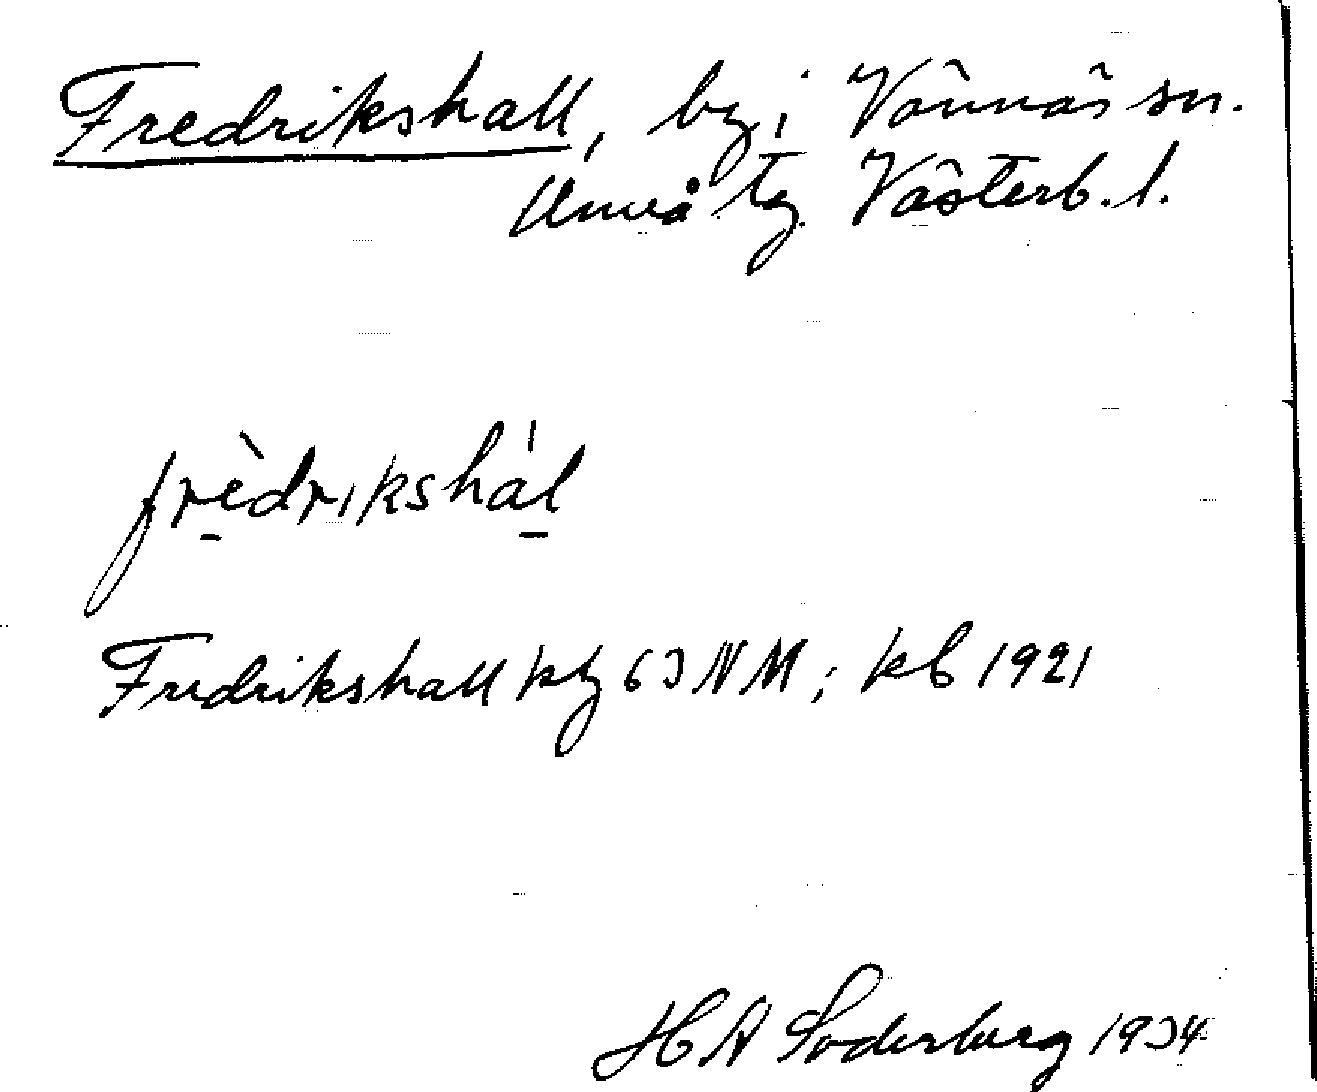 Fredrikshall, by i Vännäs sn.
Umeå tg. Västerb. l.
frèdrikshál
Fredrikshall kbl 63 NM; kb 1921
H A Söderberg 1934